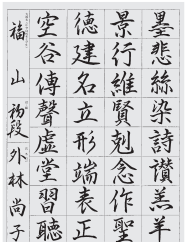 墨悲絲染詩讃羔羊
景行維賢剋念作聖
徳建名立形端表正
空谷傳聲虚堂習聽
福山 初段 外林尚子